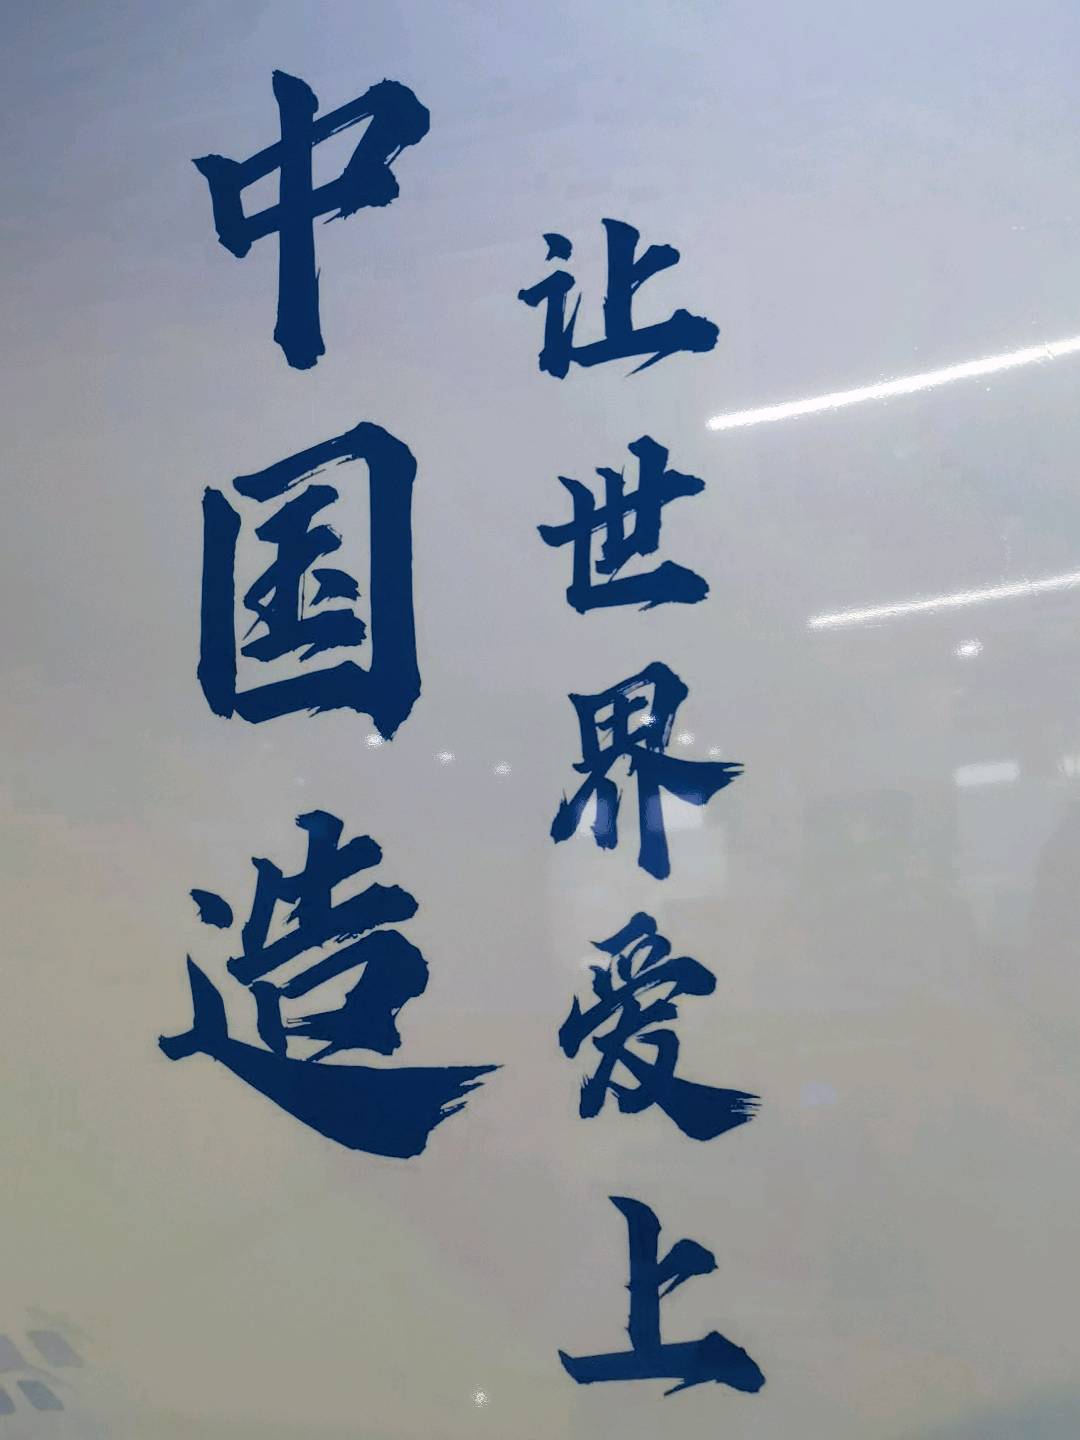 让世界爱上
中国造